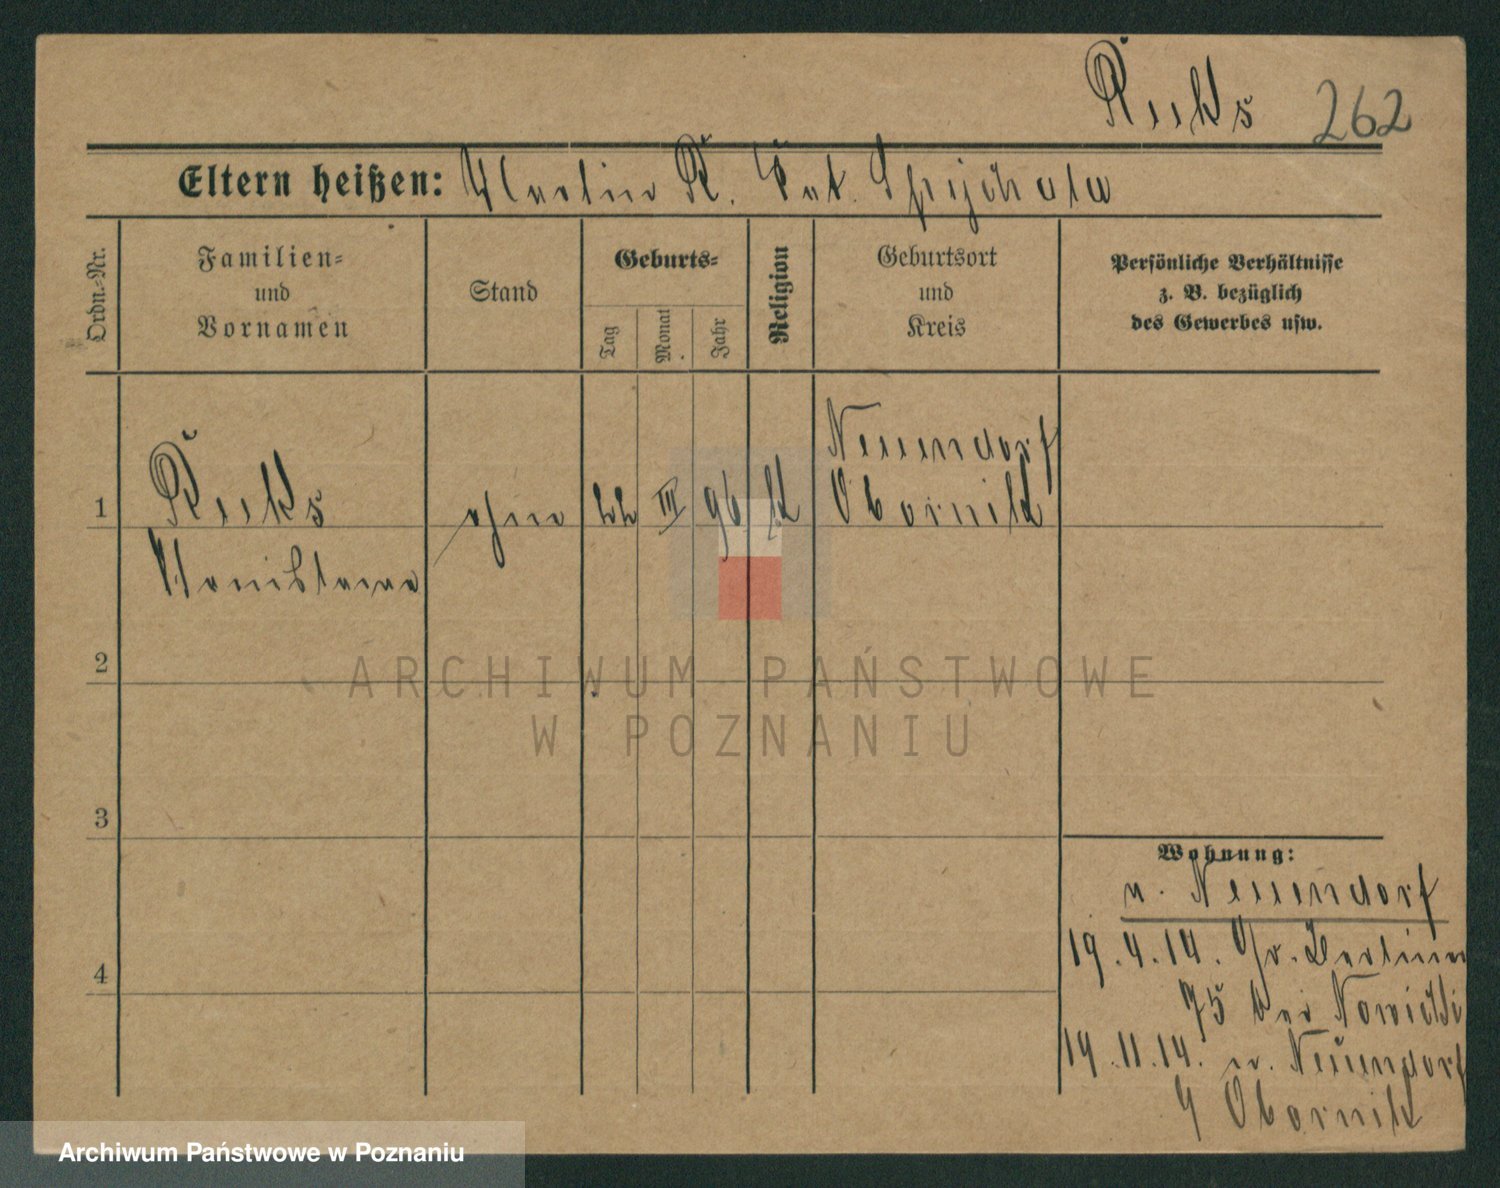 262
Eltern heißen: Martin R. Kat. Spijchala
Ordn.-Nr.
Familien-
und
Vornamen
Stand
Geburts-
Tag
Monat
Jahr
Religion
Geburtsort
und
Kreis
Persönliche Verhältnisse
z. B. bezüglich
des Gewerbes usw.
Neuendorf
1 ohne 22 III 96 K Obornik
Stanislawa
2
ARCHIWUM PAŃSTWOWE
W POZNANIU
3
4
Wohnung:
n. Neuendorf
19.4.14. Gr. Berliner
75 bei Nowicki
14.11.14. n. Neuendorf
Obornik
Archiwum Państwowe w Poznaniu